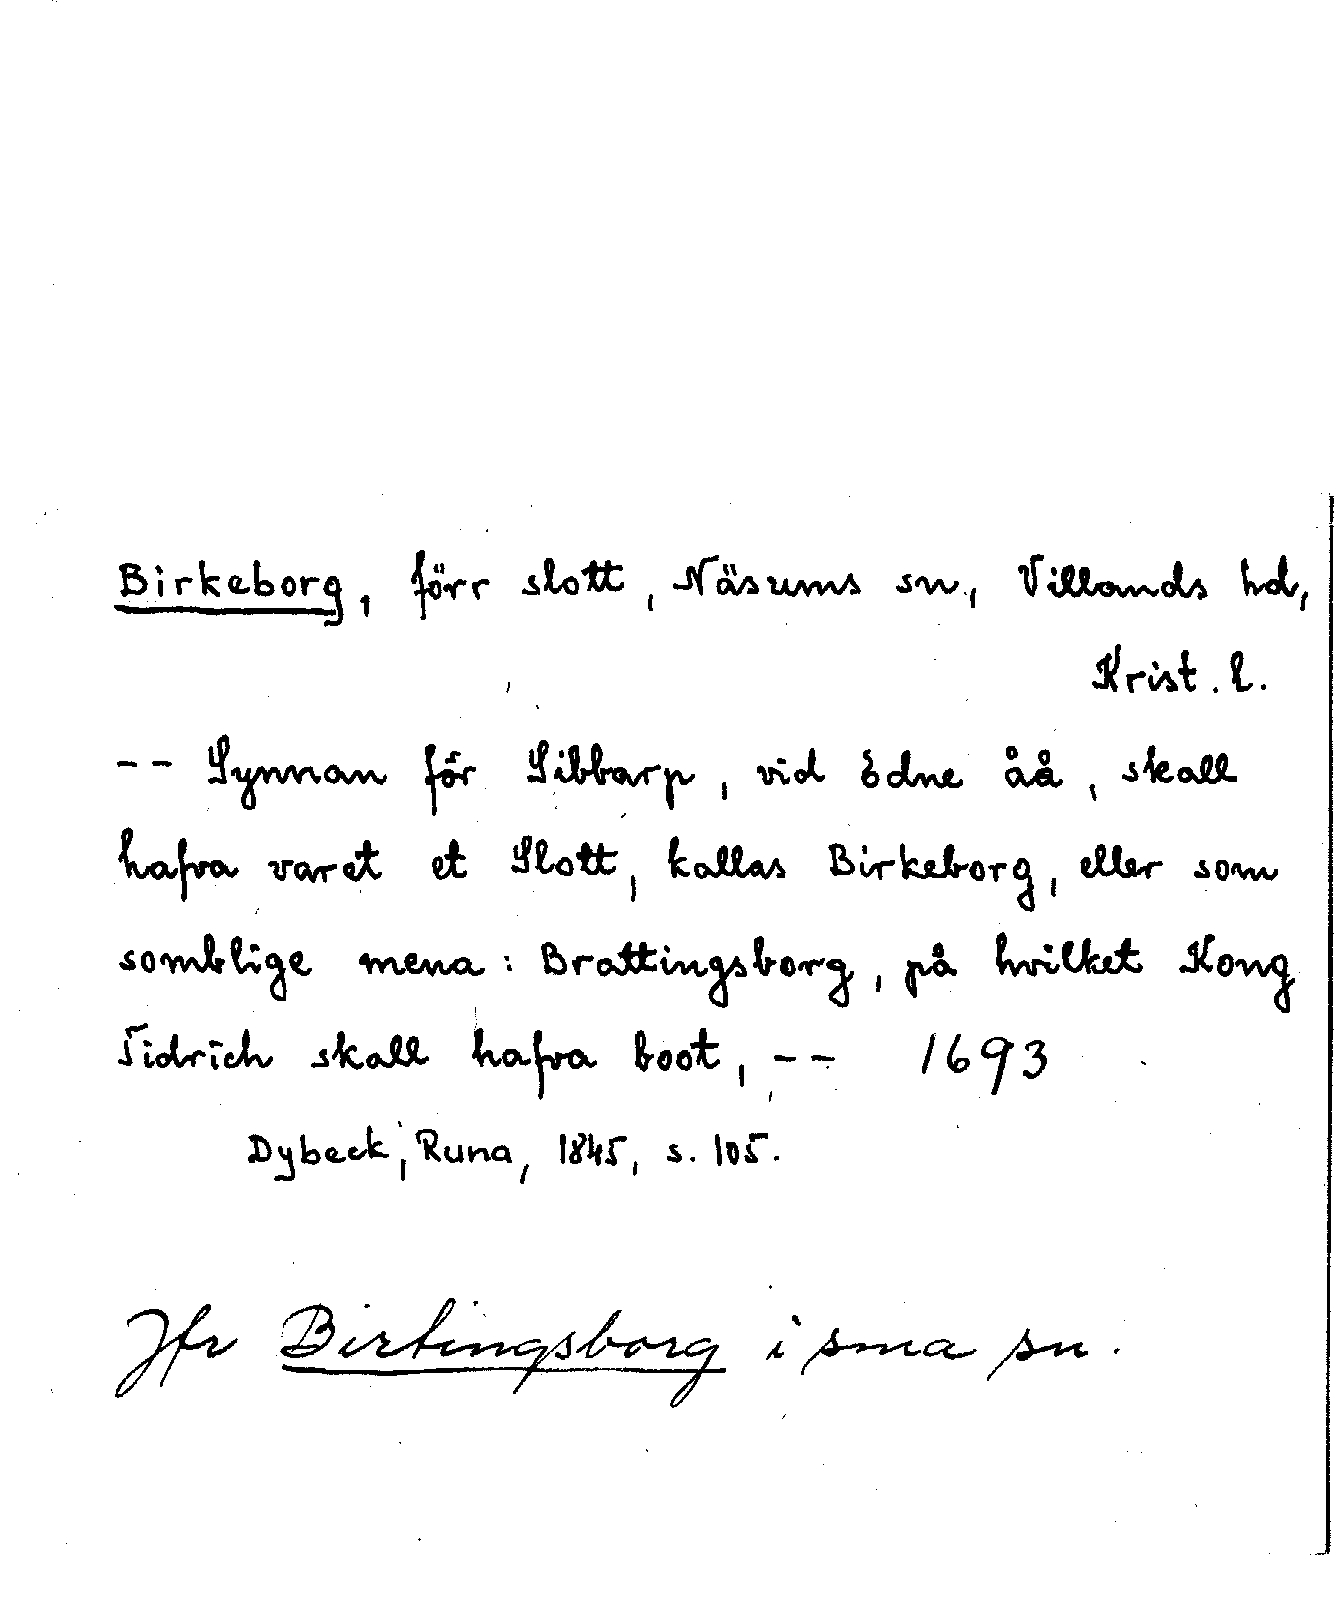 Birkeborg, förr slott, Näsums sn, Villands hd,
Krist. l.
-- Synnan för Sibbarp, vid ödne åå, skall
hafva varet et Slott, kallas Birkeborg, eller som
somblige mena: Brattingsborg, på hvilket Kong
Tidrich skall hafva boot, -- 1693
Dybeck, Runa, 1845, s. 105.
Jfr Birtingsborg i sma sn.